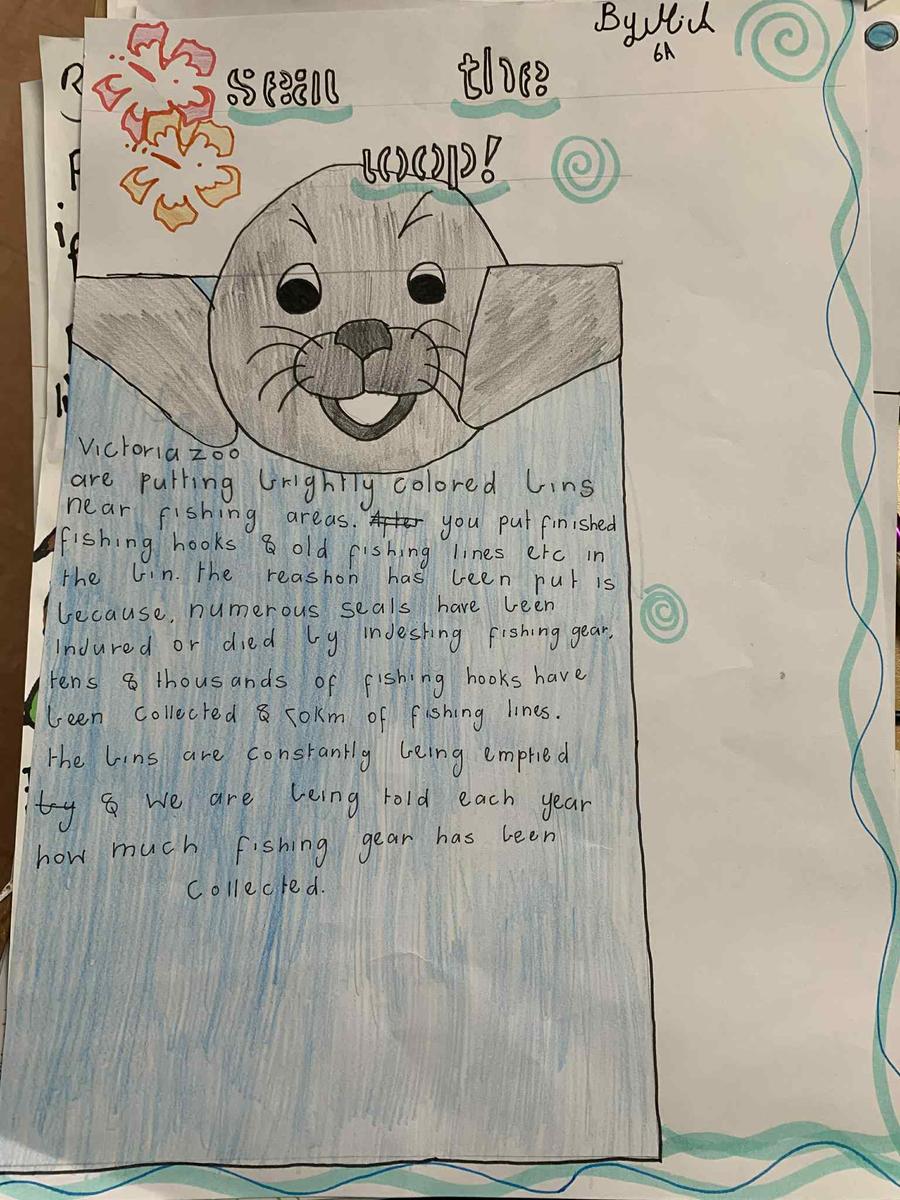 By MiA
6A
Seal the
loop!
Victoria zoo
are putting brightly colored bins
near fishing areas. After you put finished
fishing hooks & old fishing lines etc in
the bin. the reashon has been put is
because, numerous seals have been
Indured or died by indesting fishing gear.
tens & thousands of fishing hooks have
been collected & 50km of fishing lines.
the bins are constantly being emptied
by & we are being told each year
how much fishing gear has been
collected.